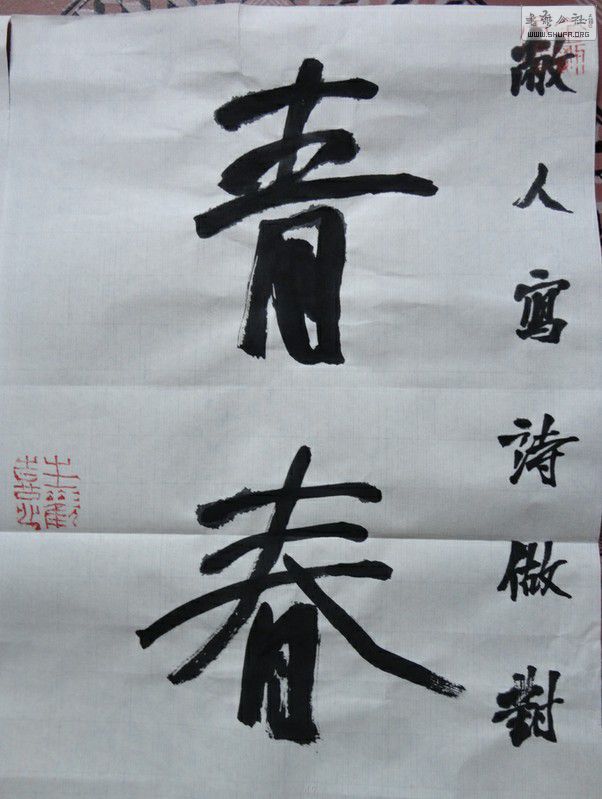 书法公社
WWW.SHUFA.ORG
敝人寫詩做對
青春